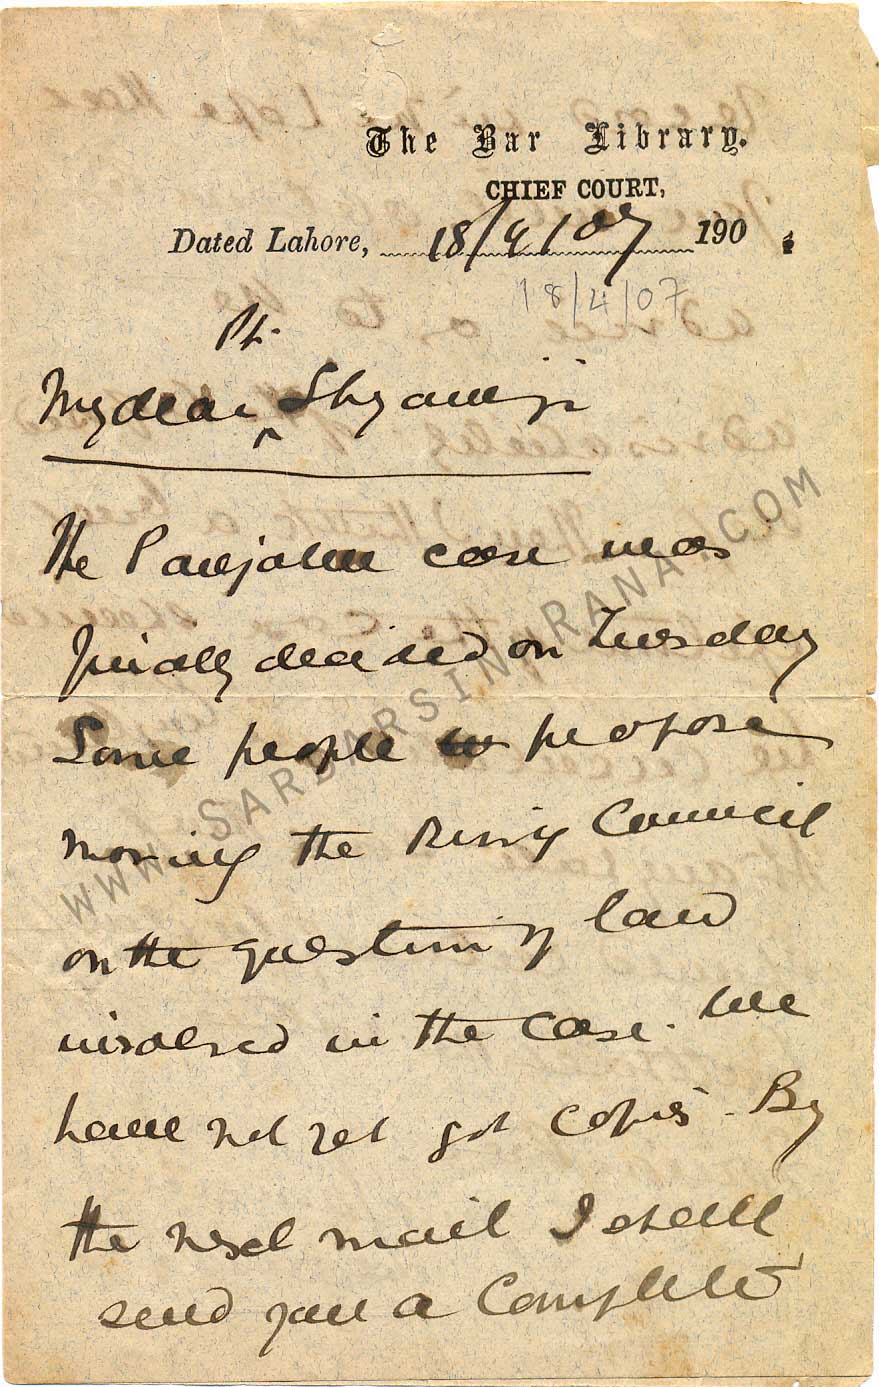 The Bar Library.
CHIEF COURT,
Dated Lahore, 18/4/07 190
18/4/07
Pt.
My dear ^ Shyamji
The Punjabee case was
finally decided on Tuesday
Some people propose
moving the Privy Council
on the question of law
involved in the case. We
have not yet got copies. By
the next mail I shall
send you a complete
WWW.SARDARSINHRANA.COM